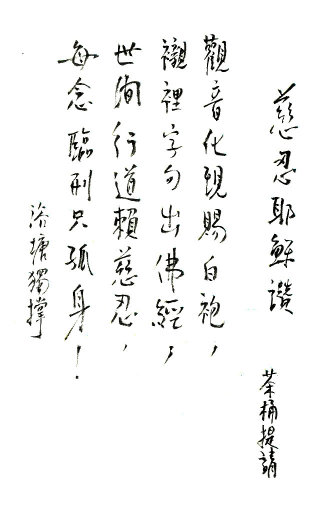 慈忍耶穌讚
茶桶提請
觀音化現賜白袍，
襯裡字句出佛經；
世間行道賴慈忍，
每念臨刑只孤身！
浴塘獨撐